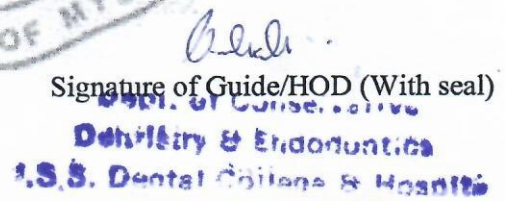 OF MY
Signature of Guide/HOD (With seal)
Dept. of Conservative
Dentistry & Endodontics
J.S.S. Dental College & Hospital